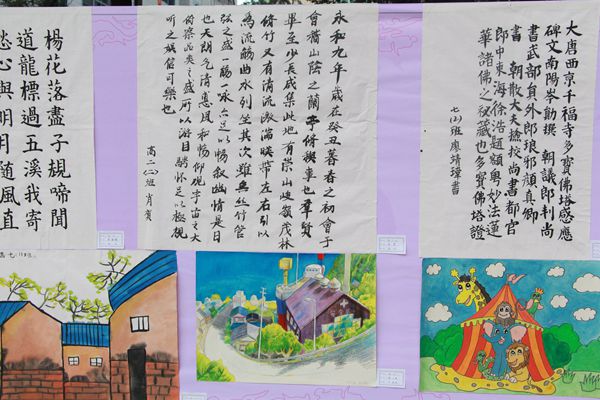 大唐西京千福寺多寶佛塔感應
碑文南陽岑勛撰 朝議郎判尚
書武部員外郎琅邪顏真卿
書 朝散大夫撿挍尚書都官
郎中東海徐浩題額粵妙法蓮
華諸佛之秘藏也多寶佛塔證
永和九年歲在癸丑暮春之初會于
會稽山陰之蘭亭脩稧事也羣賢
畢至少長咸集此地有崇山峻嶺茂林
脩竹又有清流激湍暎帶左右引以
為流觴曲水列坐其次雖無絲竹管
弦之盛一觴一詠亦足以暢敘幽情是日
也天朗氣清惠風和暢仰觀宇宙之大
俯察品類之盛所以游目騁懷足以極視
聽之娛信可樂也
高二(二)班 肖賓
楊花落盡子規啼聞
道龍標過五溪我寄
愁心與明月隨風直